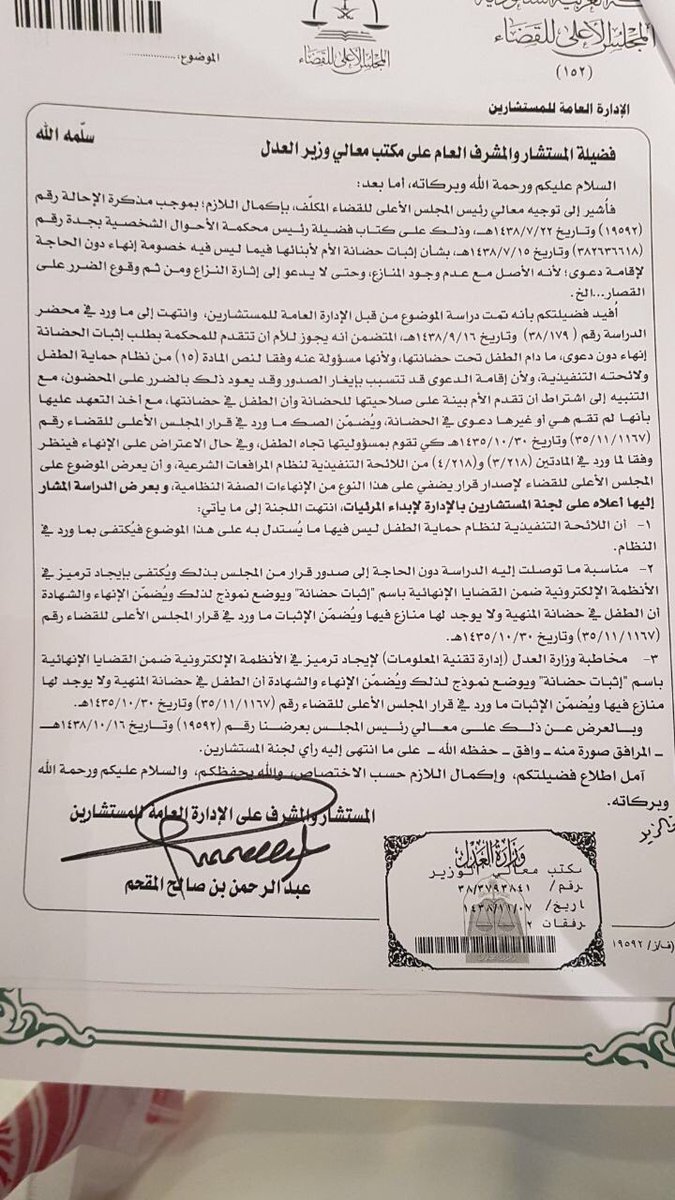 المجلس الأعلى للقضاء
المجلس الأعلى للقضاء
(١٥٢)
الموضوع:
الإدارة العامة للمستشارين
فضيلة المستشار والمشرف العام على مكتب معالي وزير العدل سلّمه الله
السلام عليكم ورحمة الله وبركاته، أما بعد:
فأشير إلى توجيه معالي رئيس المجلس الأعلى للقضاء المكلّف، بإكمال اللازم؛ بموجب مذكرة الإحالة رقم
(١٩٥٩٢) وتاريخ ١٤٣٨/٧/٢٢هـ، وذلك على كتاب فضيلة رئيس محكمة الأحوال الشخصية بجدة رقم
(٣٨٢٦٣٦٦١٨) وتاريخ ١٤٣٨/٧/١٥هـ، بشأن إثبات حضانة الأم لأبنائها فيما ليس فيه خصومة إنهاء دون الحاجة
لإقامة دعوى؛ لأنه الأصل مع عدم وجود المنازع، وحتى لا يدعو إلى إثارة النزاع ومن ثم وقوع الضرر على
القصار...الخ.
أفيد فضيلتكم بأنه تمت دراسة الموضوع من قبل الإدارة العامة للمستشارين، وانتهت إلى ما ورد في محضر
الدراسة رقم (٣٨/١٧٩) وتاريخ ١٤٣٨/٩/١٦هـ، المتضمن أنه يجوز للأم أن تتقدم للمحكمة بطلب إثبات الحضانة
إنهاء دون دعوى، ما دام الطفل تحت حضانتها، ولأنها مسؤولة عنه وفقا لنص المادة (١٥) من نظام حماية الطفل
ولائحته التنفيذية، ولأن إقامة الدعوى قد تتسبب بإيغار الصدور وقد يعود ذلك بالضرر على المحضون، مع
التنبيه إلى اشتراط أن تقدم الأم بينة على صلاحيتها للحضانة وأن الطفل في حضانتها، مع أخذ التعهد عليها
بأنها لم تقم هي أو غيرها دعوى في الحضانة، ويُضمّن الصك ما ورد في قرار المجلس الأعلى للقضاء رقم
(٣٥/١١/١١٦٧) وتاريخ ١٤٣٥/١٠/٣٠هـ كي تقوم بمسؤوليتها تجاه الطفل، وفي حال الاعتراض على الإنهاء فينظر
وفقا لما ورد في المادتين (٣/٢١٨) و(٤/٢١٨) من اللائحة التنفيذية لنظام المرافعات الشرعية، و أن يعرض الموضوع على
المجلس الأعلى للقضاء لإصدار قرار يضفي على هذا النوع من الإنهاءات الصفة النظامية، و بعرض الدراسة المشار
إليها أعلاه على لجنة المستشارين بالإدارة لإبداء المرئيات، انتهت اللجنة إلى ما يأتي:
١- أن اللائحة التنفيذية لنظام حماية الطفل ليس فيها ما يُستدل به على هذا الموضوع فيُكتفى بما ورد في
النظام.
٢- مناسبة ما توصلت إليه الدراسة دون الحاجة إلى صدور قرار من المجلس بذلك ويُكتفى بإيجاد ترميز في
الأنظمة الإلكترونية ضمن القضايا الإنهائية باسم "إثبات حضانة" ويوضع نموذج لذلك ويُضمّن الإنهاء والشهادة
أن الطفل في حضانة المنهية ولا يوجد لها منازع فيها ويُضمّن الإثبات ما ورد في قرار المجلس الأعلى للقضاء رقم
(٣٥/١١/١١٦٧) وتاريخ ١٤٣٥/١٠/٣٠هـ.
٣- مخاطبة وزارة العدل (إدارة تقنية المعلومات) لإيجاد ترميز في الأنظمة الإلكترونية ضمن القضايا الإنهائية
باسم "إثبات حضانة" ويوضع نموذج لذلك ويُضمّن الإنهاء والشهادة أن الطفل في حضانة المنهية ولا يوجد لها
منازع فيها ويُضمّن الإثبات ما ورد في قرار المجلس الأعلى للقضاء رقم (٣٥/١١/١١٦٧) وتاريخ ١٤٣٥/١٠/٣٠هـ.
وبالعرض عن ذلك على معالي رئيس المجلس بعرضنا رقم (١٩٥٩٢) وتاريخ ١٤٣٨/١٠/١٦هـ
ـ المرافق صورة منه ـ وافق ـ حفظه الله ـ على ما انتهى إليه رأي لجنة المستشارين.
آمل اطلاع فضيلتكم، وإكمال اللازم حسب الاختصاص، والله يحفظكم، والسلام عليكم ورحمة الله
وبركاته.
المستشار والمشرف على الإدارة العامة للمستشارين
عبدالرحمن بن صالح المقحم
وزارة العدل
مكتب معالي الوزير
رقم/ ٣٨/٣٧٩٣٨٤١
تاريخ/ ١٤٣٨/١١/٠٧
مرفقات ٢
(فاز/ ١٩٥٩٢